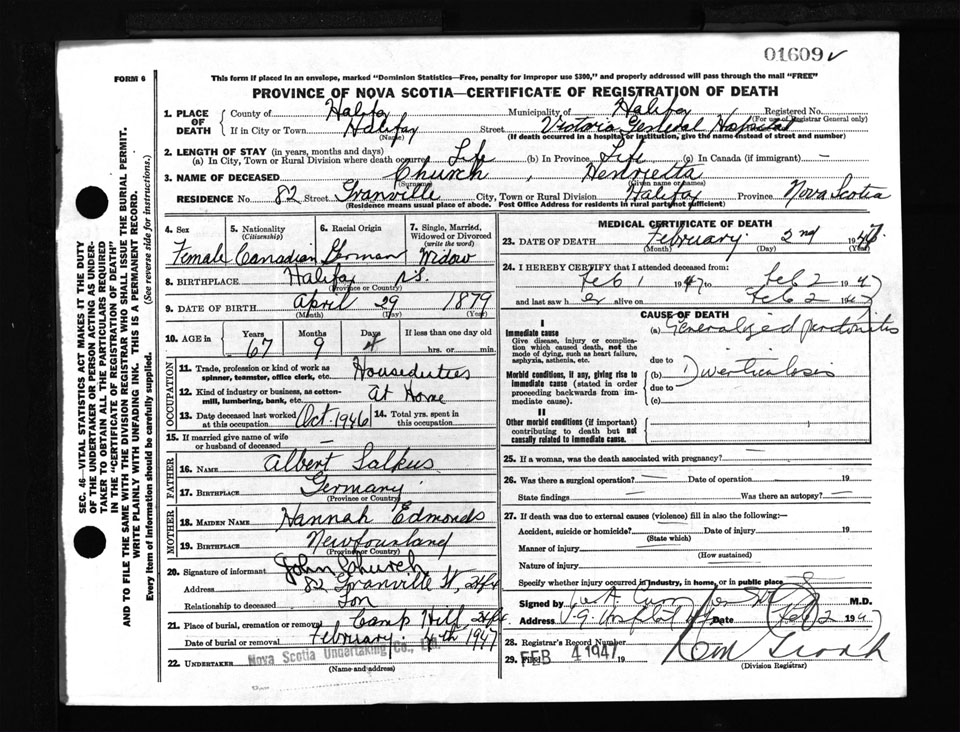 01609
FORM 6
This form if placed in an envelope, marked "Dominion Statistics—Free, penalty for improper use $300," and properly addressed will pass through the mail "FREE"
PROVINCE OF NOVA SCOTIA—CERTIFICATE OF REGISTRATION OF DEATH
1. PLACE OF DEATH County of Halifax Municipality of Halifax Registered No. (For use Registrar General only)
If in City or Town Halifax (Name) Street Victoria General Hospital
(If death occurred in a hospital or institution, give the name instead of street and number)
2. LENGTH OF STAY (in years, months and days)
(a) In City, Town or Rural Division where death occurred Life (b) In Province Life (c) In Canada (if immigrant) —
3. NAME OF DECEASED Church, Henrietta
(Surname) (Given name or names)
RESIDENCE No 82 Street Granville City, Town or Rural Division Halifax Province Nova Scotia
(Residence means usual place of abode. Post Office Address for residents in rural parts not sufficient)
4. Sex Female
5. Nationality (Citizenship) Canadian
6. Racial Origin German
7. Single, Married, Widowed or Divorced (write the word) Widow
8. BIRTHPLACE Halifax N.S.
(Province or Country)
9. DATE OF BIRTH April 29 1879
(Month) (Day) (Year)
10. AGE in Years 67 Months 9 Days 4 If less than one day old hrs. or min.
OCCUPATION
11. Trade, profession or kind of work as spinner, teamster, office clerk, etc. Houseduties
12. Kind of industry or business, as cotton-mill, lumbering, bank, etc. At Home
13. Date deceased last worked at this occupation Oct. 1946 14. Total yrs. spent in this occupation
15. If married give name of wife or husband of deceased —
FATHER
16. NAME Albert Salkus
17. BIRTHPLACE Germany
(Province or Country)
MOTHER
18. MAIDEN NAME Hannah Edmonds
19. BIRTHPLACE Newfoundland
(Province or Country)
20. Signature of informant John Church
Address 82 Granville St, Hfx
Relationship to deceased Son
21. Place of burial, cremation or removal Camp Hill, Hfx
Date of burial or removal February 4th 1947
22. UNDERTAKER Nova Scotia Undertaking Co., Ltd.
(Name and address)
MEDICAL CERTIFICATE OF DEATH
23. DATE OF DEATH February 2nd 1947
(Month) (Day) (Year)
24. I HEREBY CERTIFY that I attended deceased from:
Feb 1 1947 to Feb 2 1947
and last saw her alive on Feb 2 1947
CAUSE OF DEATH
I
Immediate cause
Give disease, injury or complication which caused death, not the mode of dying, such as heart failure, asphyxia, asthenia, etc.
(a) Generalized peritonitis
due to
Morbid conditions, if any, giving rise to immediate cause (stated in order proceeding backwards from immediate cause).
(b) Diverticulosis
due to
(c)
II
Other morbid conditions (if important) contributing to death but not causally related to immediate cause.
25. If a woman, was the death associated with pregnancy? —
26. Was there a surgical operation? — Date of operation 19
State findings — Was there an autopsy? —
27. If death was due to external causes (violence) fill in also the following:—
Accident, suicide or homicide? Date of injury 19
(State which)
Manner of injury
(How sustained)
Nature of injury
Specify whether injury occurred in industry, in home, or in public place
Signed by M.D.
Address Date Feb 2 1947
28. Registrar's Record Number
29. Filed FEB 4 1947 19
(Division Registrar)
SEC. 46—VITAL STATISTICS ACT MAKES IT THE DUTY
OF THE UNDERTAKER OR PERSON ACTING AS UNDER-
TAKER TO OBTAIN ALL THE PARTICULARS REQUIRED
IN THE "CERTIFICATE OF REGISTRATION OF DEATH"
AND TO FILE THE SAME WITH THE DIVISION REGISTRAR WHO SHALL ISSUE THE BURIAL PERMIT.
WRITE PLAINLY WITH UNFADING INK. THIS IS A PERMANENT RECORD.
Every item of information should be carefully supplied. (See reverse side for instructions.)